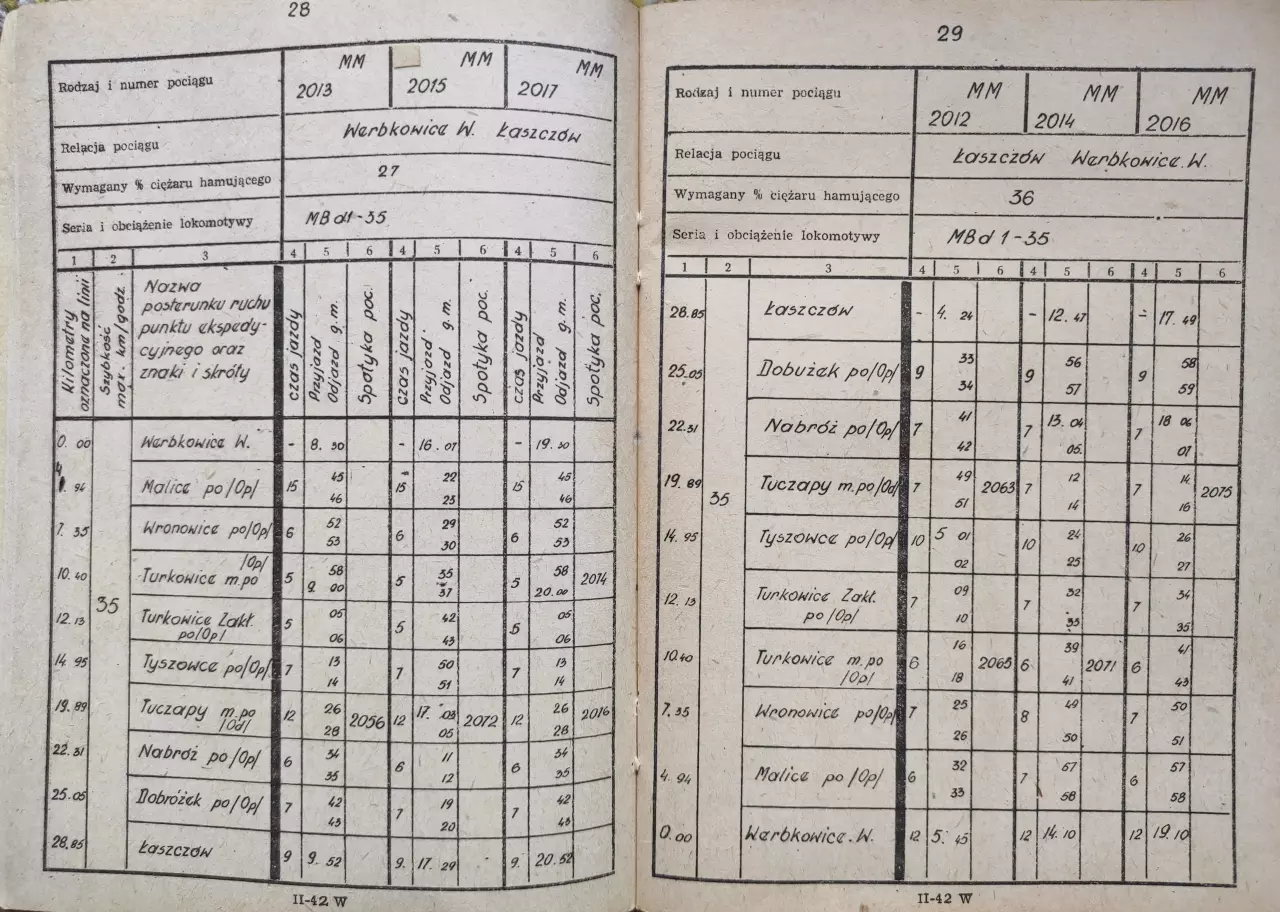 28
Rodzaj i numer pociągu MM 2013 MM 2015 MM 2017
Relacja pociągu Werbkowice W. Łaszczów
Wymagany % ciężaru hamującego 27
Seria i obciążenie lokomotywy MBd1-35
1 2 3 4 5 6 4 5 6 4 5 6
Kilometry oznaczone na linii
Szybkość max. km/godz.
Nazwa
posterunku ruchu
punktu ekspedy-
cyjnego oraz
znaki i skróty
czas jazdy
Przyjazd
Odjazd g.m.
Spotyka poc.
czas jazdy
Przyjazd
Odjazd g.m.
Spotyka poc.
czas jazdy
Przyjazd
Odjazd g.m.
Spotyka poc.
0.00 Werbkowice W. - 8.30 - 16.07 - 19.30
4.94 Malice po/Op/ 15 45 15 22 15 45
46 23 46
7.35 Wronowice po/Op/ 6 52 6 29 6 52
53 30 53
/Op/
10.40 Turkowice m.po 5 58 5 35 5 58 2014
9.00 37 20.00
35
12.13 Turkowice Zakł. 5 05 5 42 5 05
po/Op/ 06 43 06
14.95 Tyszowce po/Op/ 7 13 7 50 7 13
14 51 14
19.89 Tuczapy m.po 12 26 2056 12 17.03 2072 12 26 2016
/Od/ 28 05 28
22.31 Nabróż po/Op/ 6 34 6 11 6 34
35 12 35
25.05 Dobróżek po/Op/ 7 42 7 19 7 42
43 20 43
28.85 Łaszczów 9 9.52 9. 17.29 9. 20.52
II-42 W
29
Rodzaj i numer pociągu MM 2012 MM 2014 MM 2016
Relacja pociągu Łaszczów Werbkowice.W.
Wymagany % ciężaru hamującego 36
Seria i obciążenie lokomotywy MBd1-35
1 2 3 4 5 6 4 5 6 4 5 6
28.85 Łaszczów - 4.24 - 12.47 - 17.49
25.05 Dobużek po/Op/ 9 33 9 56 9 58
34 57 59
22.31 Nabróż po/Op/ 7 41 7 13.04 7 18 06
42 05. 07
19.89 Tuczapy m.po/Od/ 7 49 2063 7 12 7 14 2075
51 14 16
35
14.95 Tyszowce po/Op/ 10 5 01 10 24 10 26
02 25 27
12.13 Turkowice Zakł. 7 09 7 32 7 34
po/Op/ 10 33 35
10.40 Turkowice m.po 6 16 2065 6 39 2071 6 41
/Op/ 18 41 43
7.35 Wronowice po/Op/ 7 25 8 49 7 50
26 50 51
4.94 Malice po/Op/ 6 32 7 57 6 57
33 58 58
0.00 Werbkowice.W. 12 5.45 12 14.10 12 19.10
II-42 W